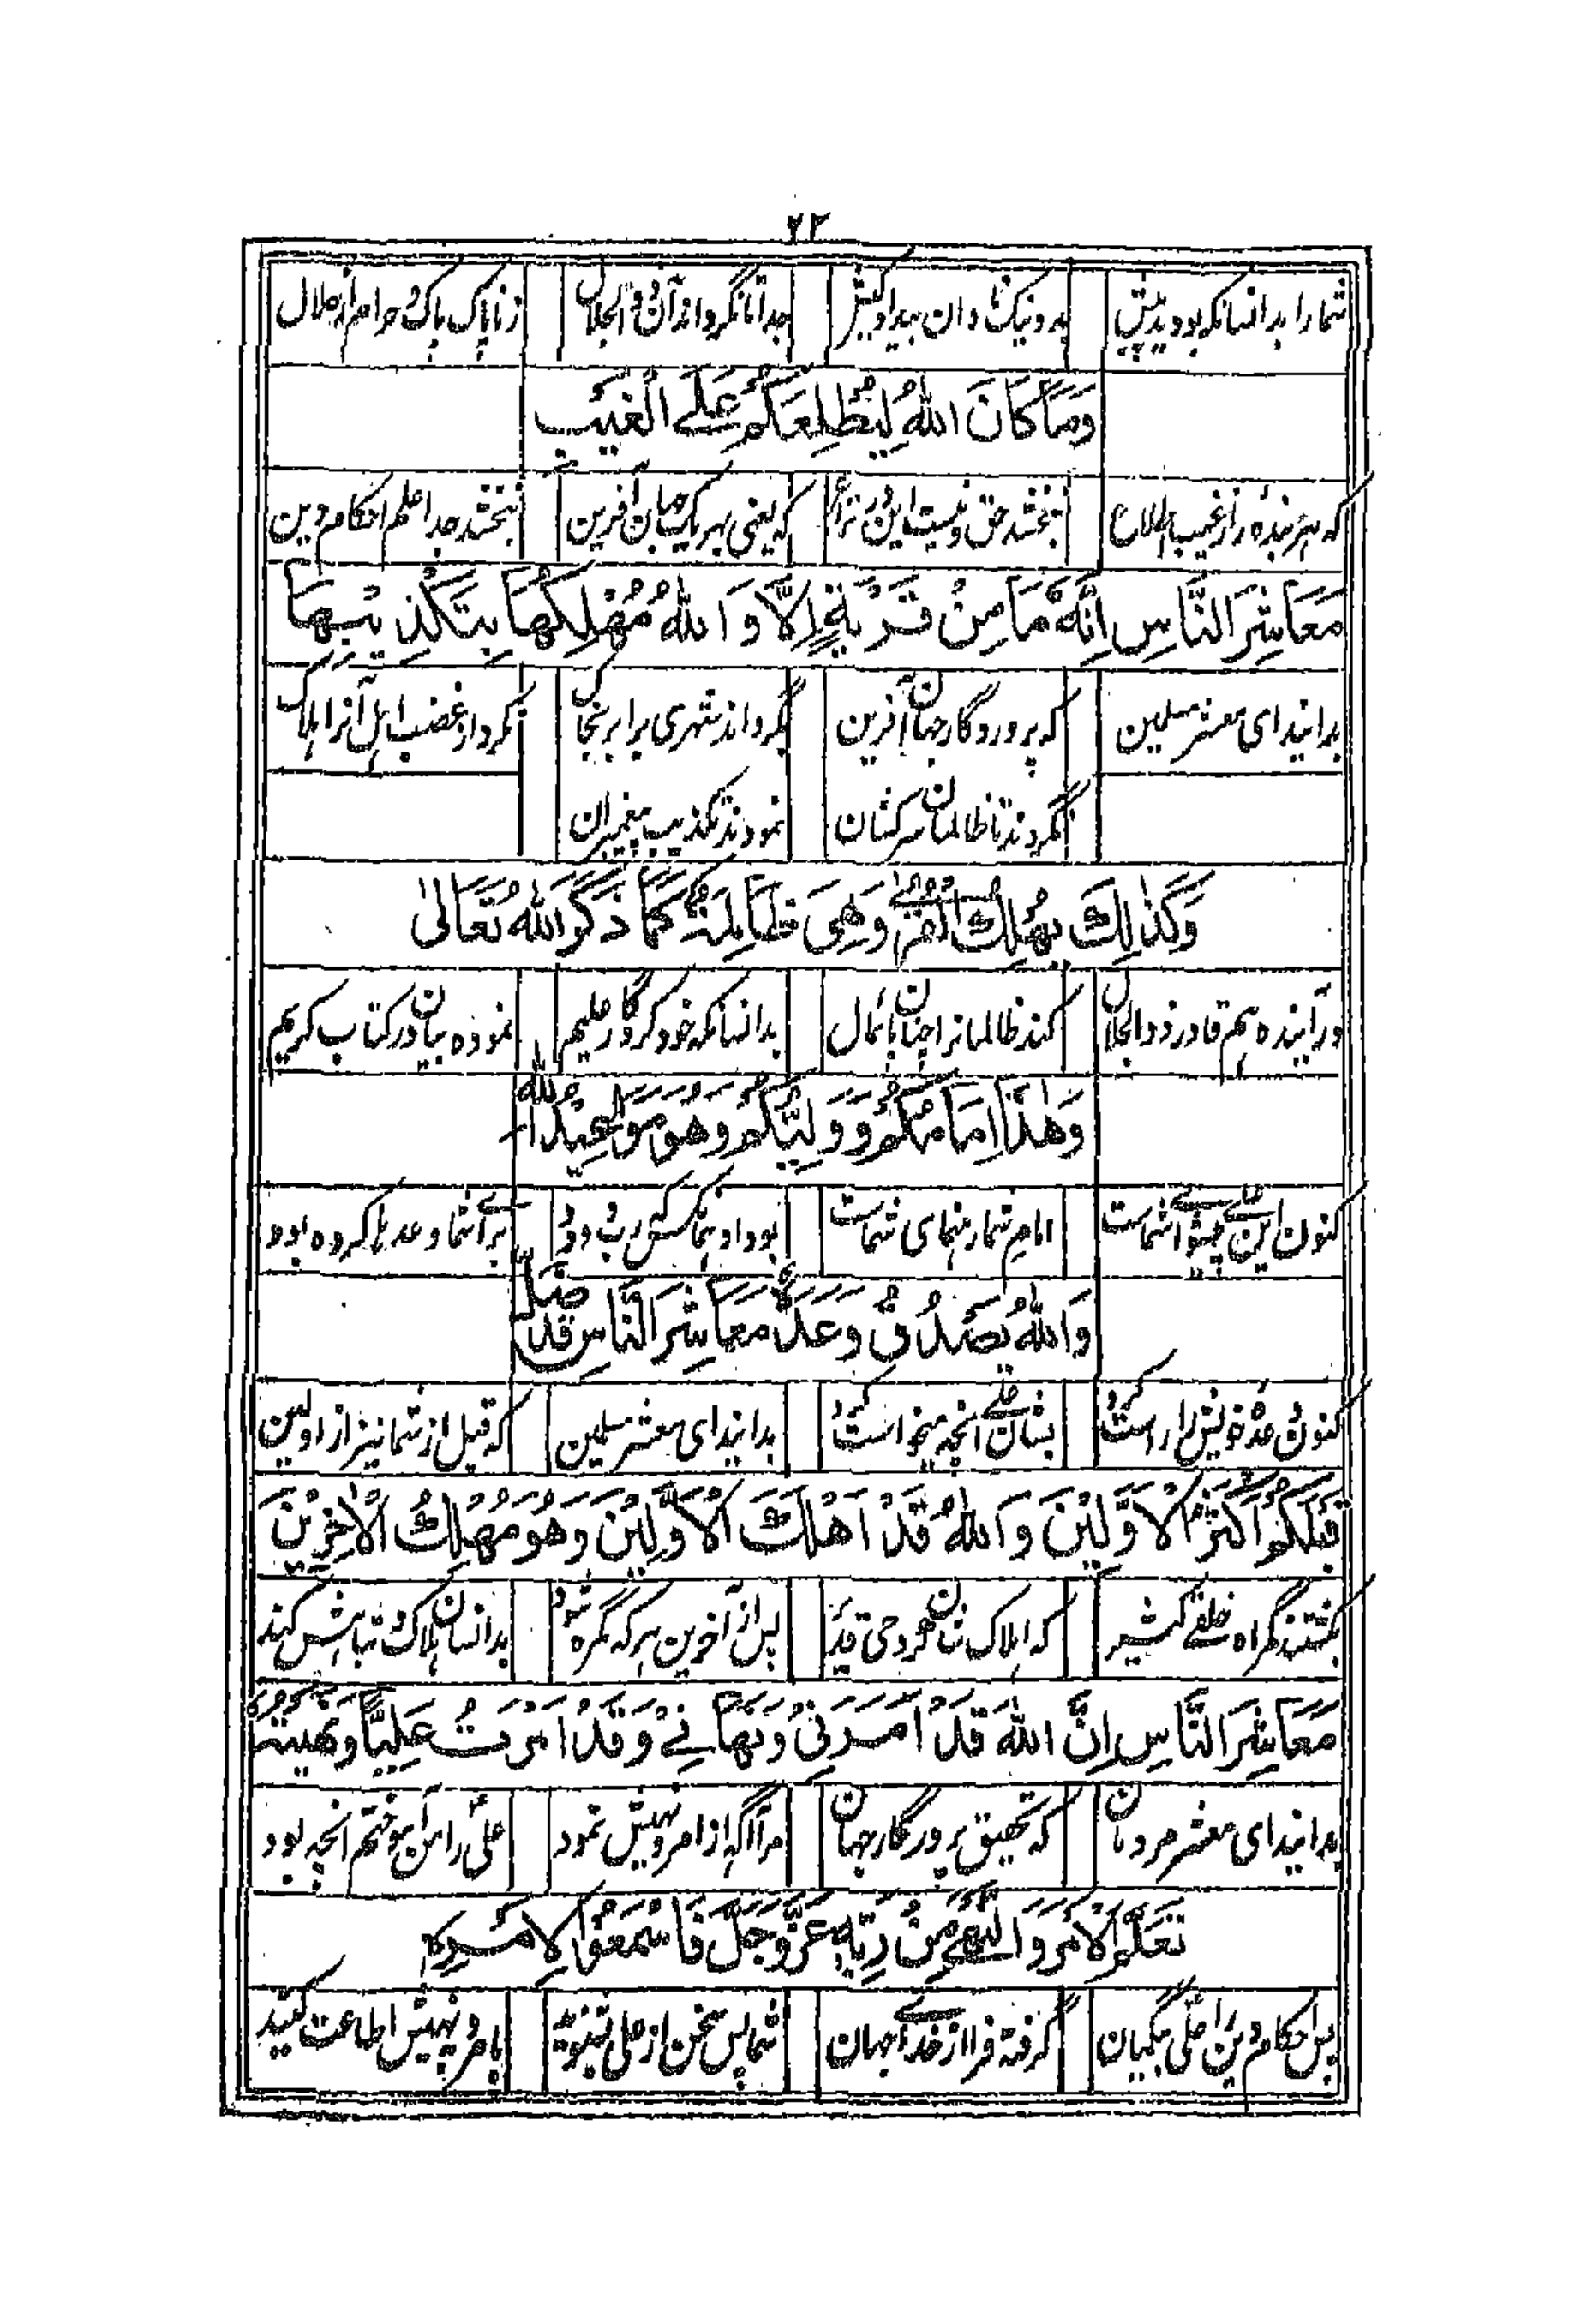 ۲۲
شما را بدانسانکه بودید پیش بد و نیک نادان بیداد کیش جدا تا نگرداند آن ذو الجلال ز ناپاک پاک و حرام از حلال
وَمَا كَانَ اللهُ لِيُطْلِعَكُمْ عَلَى الْغَيْبِ
که هر بنده را ز غیب اطلاع نبخشد حق و نیست این در نزاع که یعنی بهر یک جهان آفرین نبخشد جدا علم احکام دین
مَعَاشِرَ النَّاسِ اِنَّهُ مَا مِنْ قَرْيَةٍ اِلَّا وَاللهُ مُهْلِكُهَا بِتَكْذِيْبِهَا
بدانید ای معشر مسلمین که پروردگار جهان آفرین نگرداند شهری برابر بخاک نکرد از غضب اهل آنرا هلاک
نگردند تا ظالمان سرکشان نمودند تکذیب پیغمبران
وَكَذٰلِكَ يُهْلِكُ الْقُرٰى وَهِيَ ظَالِمَةٌ كَمَا ذَكَرَ اللهُ تَعَالٰى
در آینده هم قادر ذو الجلال کند ظالمانرا چنان پائمال بدانسانکه خود کردگار حلیم نموده بیان در کتاب کریم
وَهٰذَا اِمَامُكُمْ وَوَلِيُّكُمْ وَهُوَ مَوَاعِيْدُ اللهِ
کنون این علی پیشوای شماست امام شما رهنمای شماست بود او همانکس که رب ودود برای شما وعدها کرده بود
وَاللهُ يَصْدُقُ وَعْدَهُ مَعَاشِرَ النَّاسِ قَدْ ضَلَّ
کنون وعدهٔ خویش را راست کرد بشان علی آنچه میخواست کرد بدانید ای معشر مسلمین که قبل از شما نیز از اولین
قَبْلَكُمْ اَكْثَرُ الْاَوَّلِيْنَ وَاللهُ قَدْ اَهْلَكَ الْاَوَّلِيْنَ وَهُوَ مُهْلِكُ الْاٰخِرِيْنَ
بگشتند گمراه خلقی کثیر که اهلاک شان کرد حی قدیر پس از آخرین هر که گمره شود بدانسان هلاک و تباهش کند
مَعَاشِرَ النَّاسِ اِنَّ اللهَ قَدْ اَمَرَنِيْ وَنَهَانِيْ وَقَدْ اَمَرْتُ عَلِيًّا وَنَهَيْتُهُ
بدانید ای معشر مردمان که تحقیق پروردگار جهان مرا آگه از امر و نهیش نمود علی را من آموختم آنچه بود
تَعَلَّمَ الْاَمْرَ وَالنَّهْيَ مِنْ رَبِّهِ عَزَّ وَجَلَّ فَاسْمَعُوْا لِاَمْرِهِ
پس احکام دین را علی بیگمان گرفته فرا از خدای جهان شما پس سخن از علی بشنوید بامر و نهیش اطاعت کنید